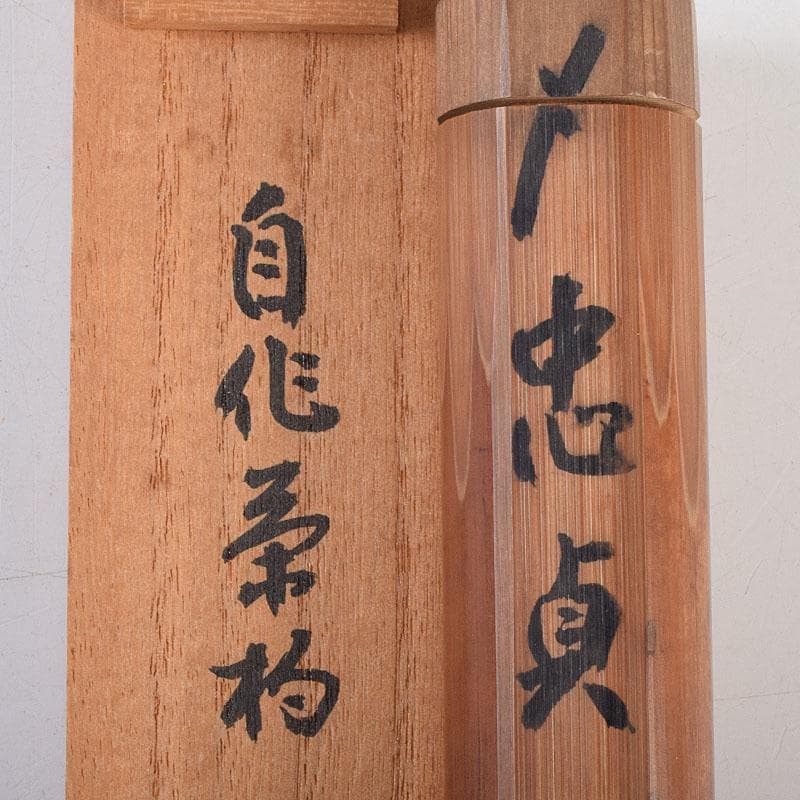 忠貞
自作茶杓